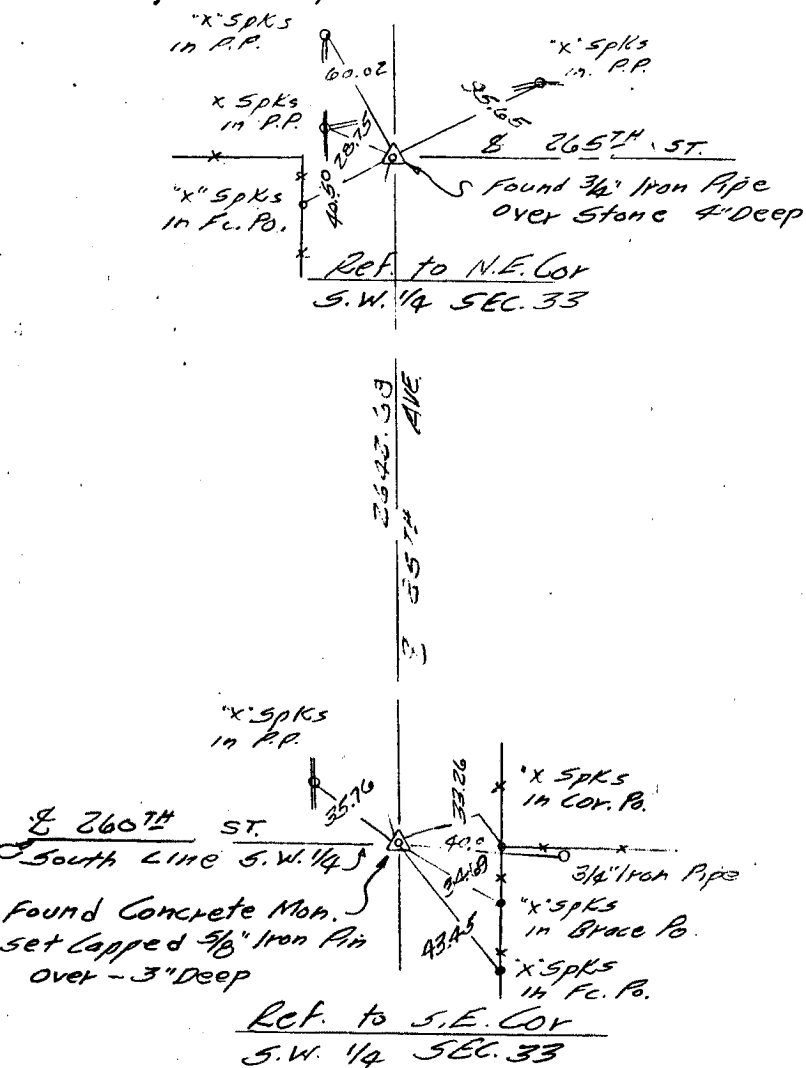 "x" Spks
in P.P.
60.02
"x" Spks
in P.P.
95.65
x Spks
in P.P.
28.75
℄ 265TH ST.
"x" Spks
in Fc. Po.
40.50
Found 3/4" Iron Pipe
Over Stone 4" Deep
Ref. to N.E. Cor
S.W. 1/4 SEC. 33
AVE.
℄
"x" Spks
in P.P.
35.76
33.26
"x Spks
in Cor. Po.
℄ 260TH ST.
South Line S.W. 1/4
40.0
3/4" Iron Pipe
34.69
"x" Spks
in Brace Po.
Found Concrete Mon.
set Capped 5/8" Iron Pin
Over - 3" Deep
43.45
"x" Spks
in Fc. Po.
Ref. to S.E. Cor
S.W. 1/4 SEC. 33